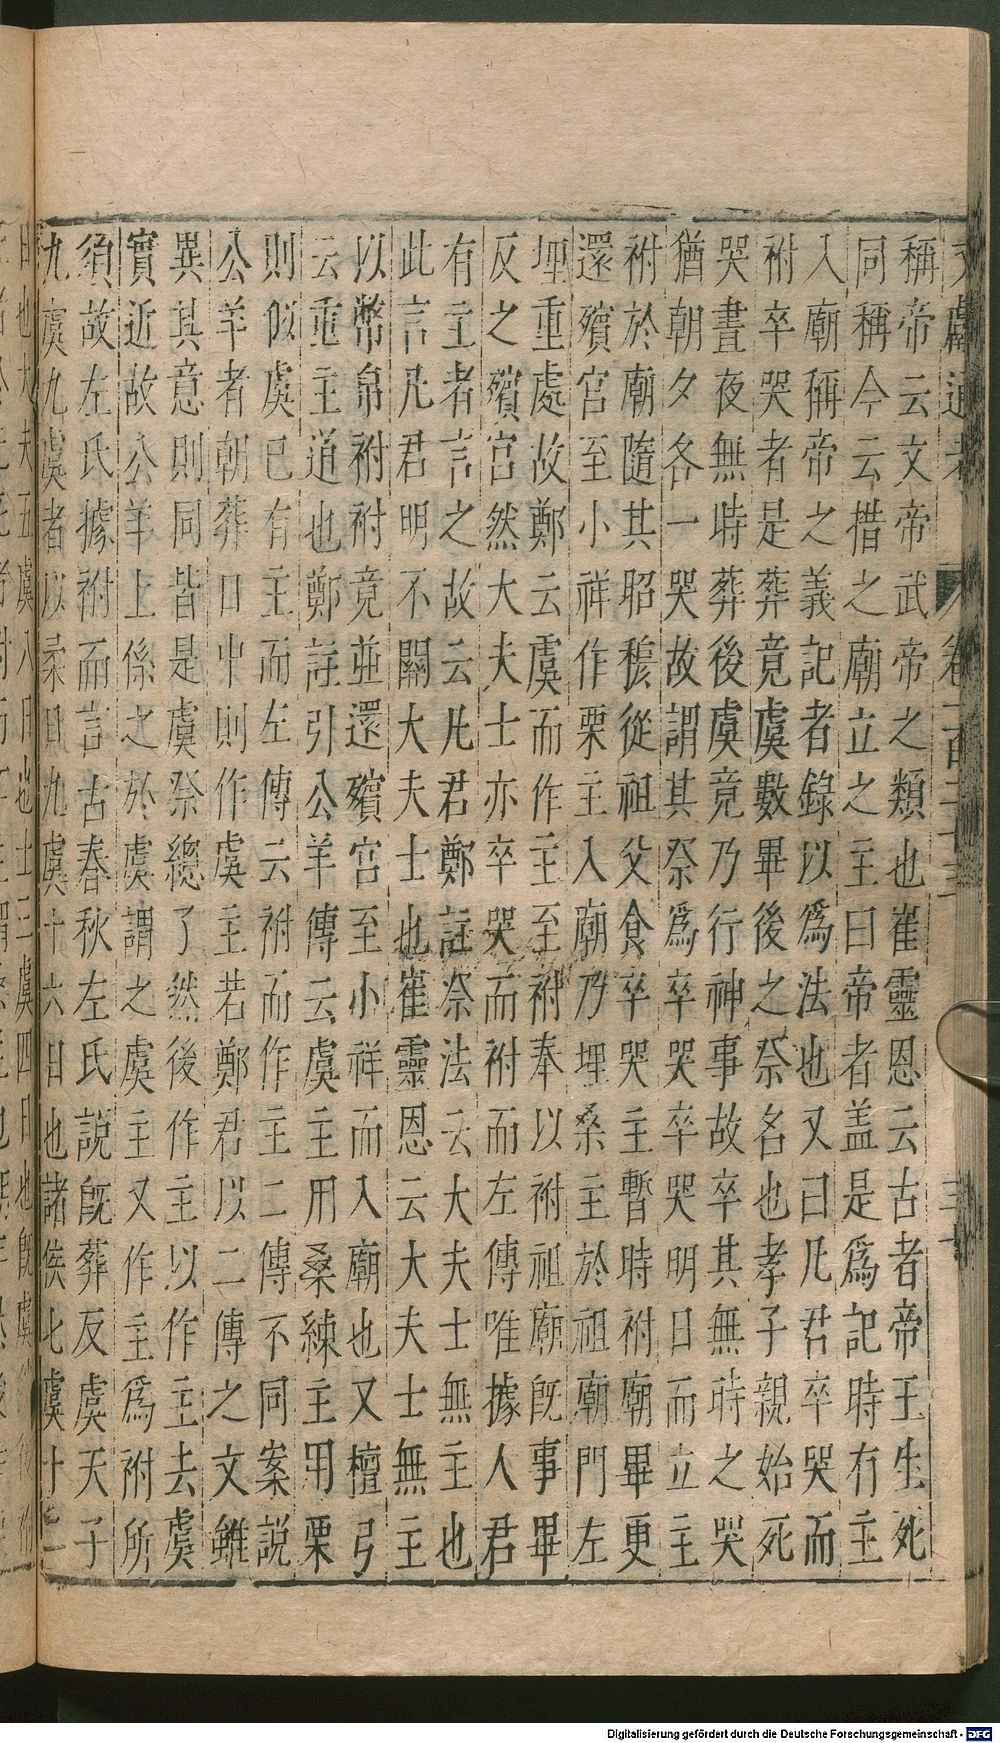 文獻通考 卷一百二十三 三十
稱帝云文帝武帝之類也崔靈恩云古者帝王生死
同稱今云措之廟立之主曰帝者盖是爲記時有主
入廟稱帝之義記者錄以爲法也又曰凡君卒哭而
祔卒哭者是葬竟虞數畢後之祭名也孝子親始死
哭晝夜無時葬後虞竟乃行神事故卒其無時之哭
猶朝夕各一哭故謂其祭爲卒哭卒哭明日而立主
祔於廟隨其昭穆從祖父食卒哭主暫時祔廟畢更
還殯宮至小祥作栗主入廟乃埋桑主於祖廟門左
埋重處故鄭云虞而作主至祔奉以祔祖廟既事畢
反之殯宮然大夫士亦卒哭而祔而左傳唯據人君
有主者言之故云凡君鄭註祭法云大夫士無主也
此言凡君明不關大夫士也崔靈恩云大夫士無主
以幣帛祔祔竟並還殯宮至小祥而入廟也又檀弓
云重主道也鄭註引公羊傳云虞主用桑練主用栗
則似虞已有主而左傳云祔而作主二傳不同案說
公羊者朝葬日中則作虞主若鄭君以二傳之文雖
異其意則同皆是虞祭總了然後作主以作主去虞
實近故公羊上係之於虞謂之虞主又作主爲祔所
須故左氏據祔而言古春秋左氏說既葬反虞天子
九虞九虞者以柔日九虞十六日也諸侯七虞十二
日也大夫五虞八日也士三虞四日也既虞
Digitalisierung gefördert durch die Deutsche Forschungsgemeinschaft - DFG